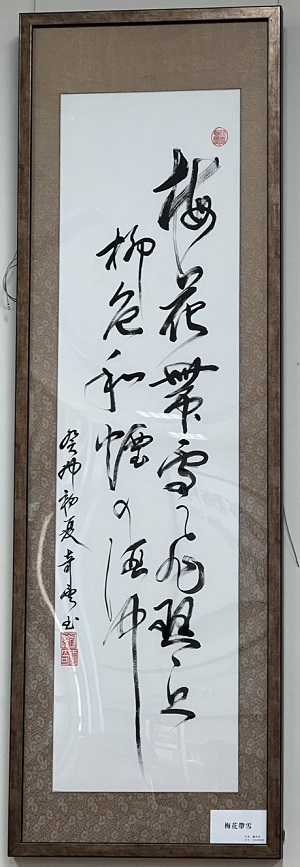 梅花帶雪飛琴上
柳色和煙入酒中
癸卯初夏
梅花帶雪